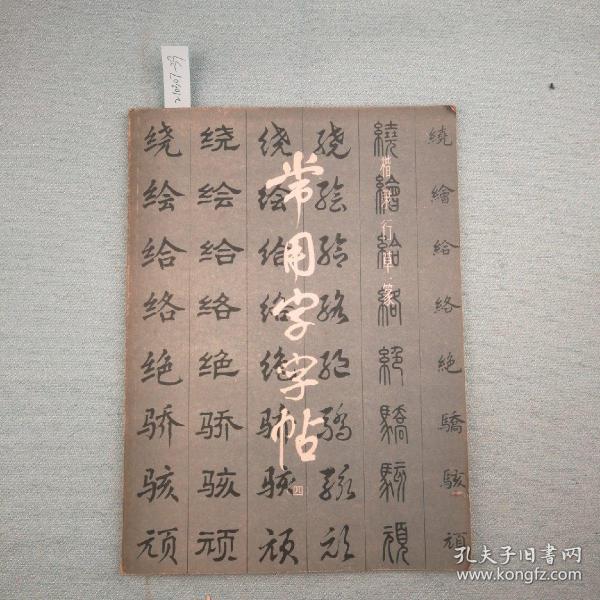 常用字字帖
四
楷 隶 行 草 篆
绕 绘 给 络 绝 骄 骇 顽
绕 绘 给 络 绝 骄 骇 顽
绕 绘 给 络 绝 骄 骇 顽
绕 绘 给 络 绝 骄 骇 顽
繞 繪 給 絡 絕 驕 駭 頑
繞 繪 給 絡 絶 驕 駭 頑
孔夫子旧书网
www.kongfz.com